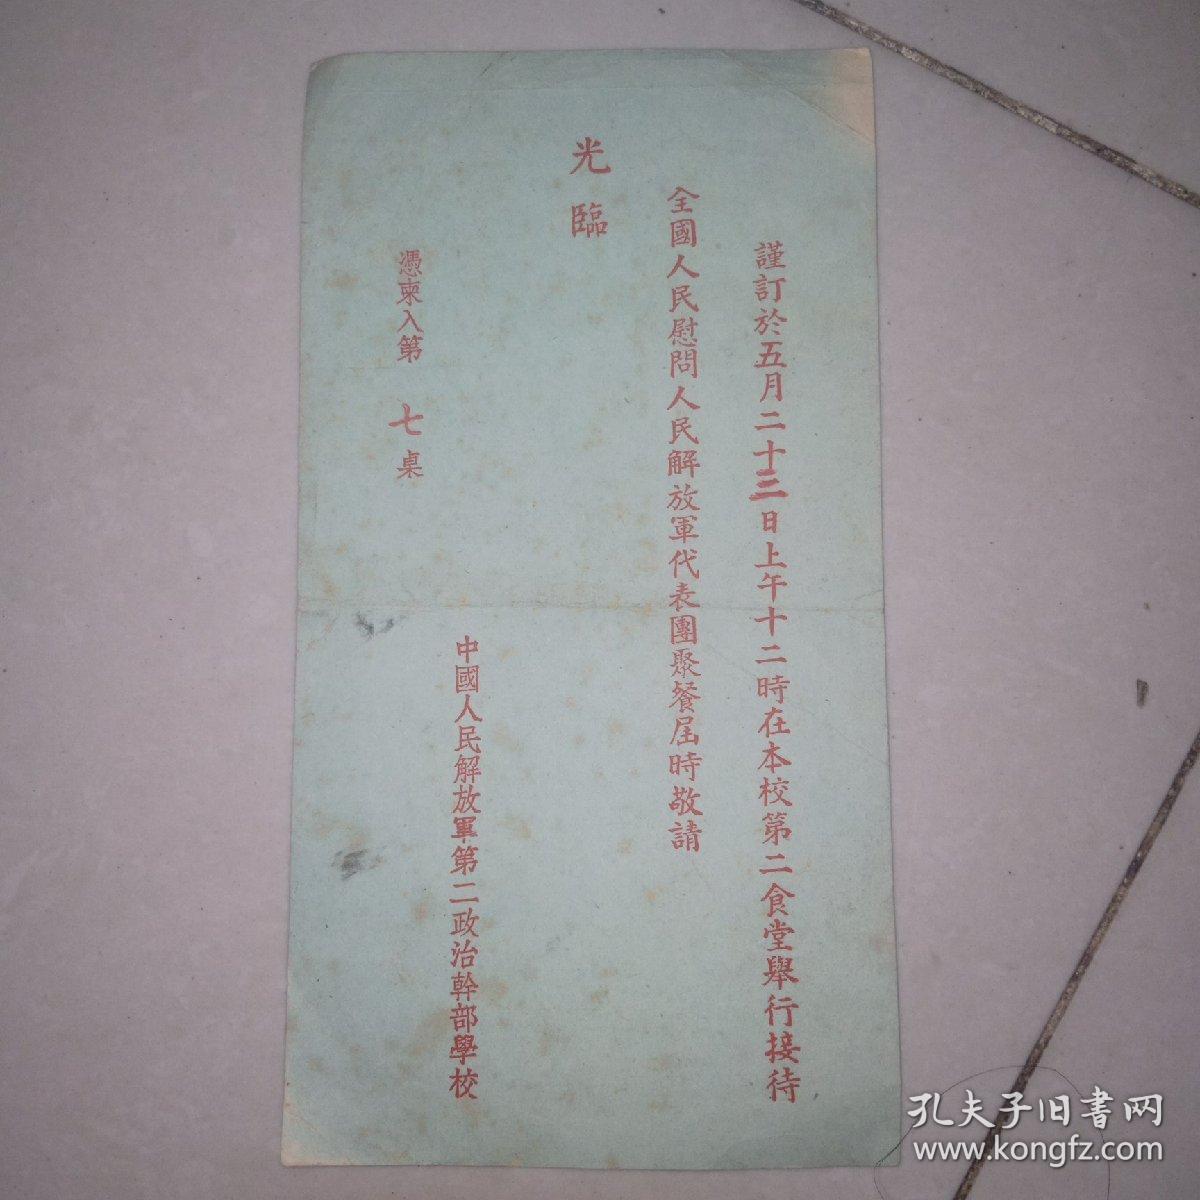 謹訂於五月二十三日上午十二時在本校第二食堂舉行接待
全國人民慰問人民解放軍代表團聚餐屆時敬請
光臨
中國人民解放軍第二政治幹部學校
憑柬入第 七 桌
孔夫子旧书网
www.kongfz.com